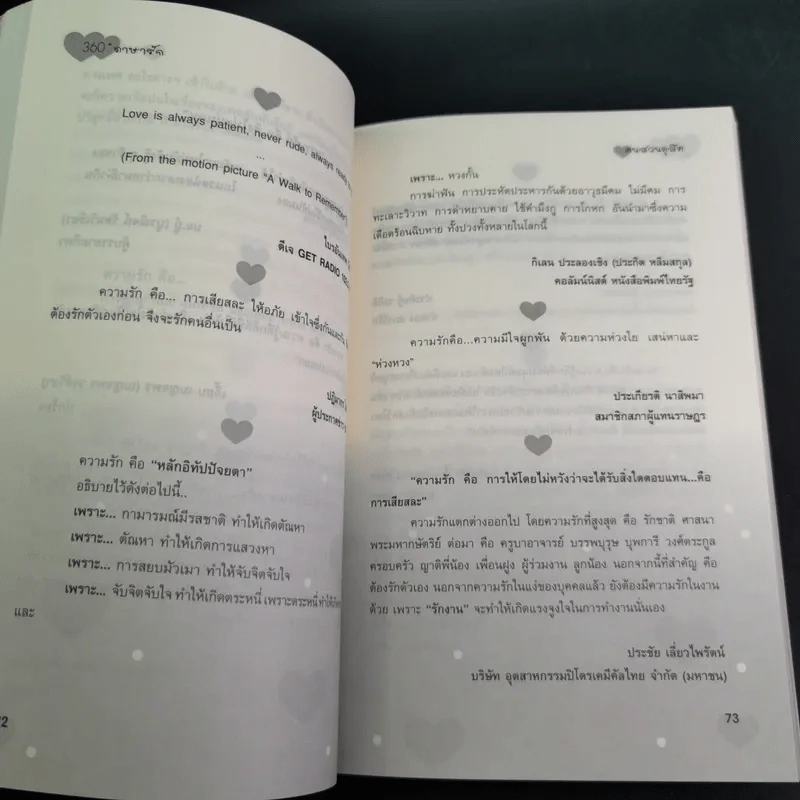 360° ภาษารัก
Love is always patient, never rude, always ready
...
(From the motion picture "A Walk to Remember")
ดีเจ GET RADIO
ความรัก คือ... การเสียสละ ให้อภัย เข้าใจซึ่งกันและกัน
ต้องรักตัวเองก่อน จึงจะรักคนอื่นเป็น
ผู้ประกาศข่าว
ความรัก คือ "หลักอิทัปปัจยตา"
อธิบายไว้ดังต่อไปนี้..
เพราะ... กามารมณ์มีรสชาติ ทำให้เกิดตัณหา
เพราะ... ตัณหา ทำให้เกิดการแสวงหา
เพราะ... การสยบมัวเมา ทำให้จับจิตจับใจ
เพราะ... จับจิตจับใจ ทำให้เกิดตระหนี่ เพราะตระหนี่ ทำให้
และ
72
คนสวนดุสิต
เพราะ... หวงกั้น
การฆ่าฟัน การประหัตประหารกันด้วยอาวุธมีคม ไม่มีคม การ
ทะเลาะวิวาท การด่าหยาบคาย ใช้คำมึงกู การโกหก อันนำมาซึ่งความ
เดือดร้อนฉิบหาย ทั้งปวงทั้งหลายในโลกนี้
กิเลน ประลองเชิง (ประกิต หลิมสกุล)
คอลัมน์นิสต์ หนังสือพิมพ์ไทยรัฐ
ความรักคือ...ความมีใจผูกพัน ด้วยความห่วงใย เสน่หาและ
"ห่วงหวง"
ประเกียรติ นาสิพมา
สมาชิกสภาผู้แทนราษฎร
"ความรัก คือ การให้โดยไม่หวังว่าจะได้รับสิ่งใดตอบแทน...คือ
การเสียสละ"
ความรักแตกต่างออกไป โดยความรักที่สูงสุด คือ รักชาติ ศาสนา
พระมหากษัตริย์ ต่อมา คือ ครูบาอาจารย์ บรรพบุรุษ บุพการี วงศ์ตระกูล
ครอบครัว ญาติพี่น้อง เพื่อนฝูง ผู้ร่วมงาน ลูกน้อง นอกจากนี้ที่สำคัญ คือ
ต้องรักตัวเอง นอกจากความรักในแง่ของบุคคลแล้ว ยังต้องมีความรักในงาน
ด้วย เพราะ "รักงาน" จะทำให้เกิดแรงจูงใจในการทำงานนั่นเอง
ประชัย เลี่ยวไพรัตน์
บริษัท อุตสาหกรรมปิโตรเคมีคัลไทย จำกัด (มหาชน)
73